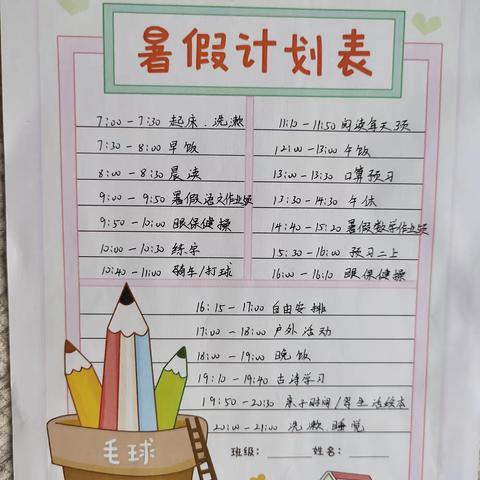 暑假计划表
7:00 - 7:30 起床.洗漱
7:30 - 8:00 早饭
8:00 - 8:30 晨读
9:00 - 9:50 暑假语文作业
9:50 - 10:00 眼保健操
10:00 - 10:30 练字
10:40 - 11:00 骑车/打球
11:10 - 11:50 阅读每天3页
12:00 - 13:00 午饭
13:00 - 13:30 口算预习
13:30 - 14:30 午休
14:40 - 15:20 暑假数学作业
15:30 - 16:00 预习二上
16:00 - 16:10 眼保健操
16:15 - 17:00 自由安排
17:00 - 18:00 户外活动
18:00 - 19:00 晚饭
19:10 - 19:40 古诗学习
19:50 - 20:30 亲子时间/绘本
20:00 - 21:00 洗漱.睡觉
毛球
班级: 姓名: